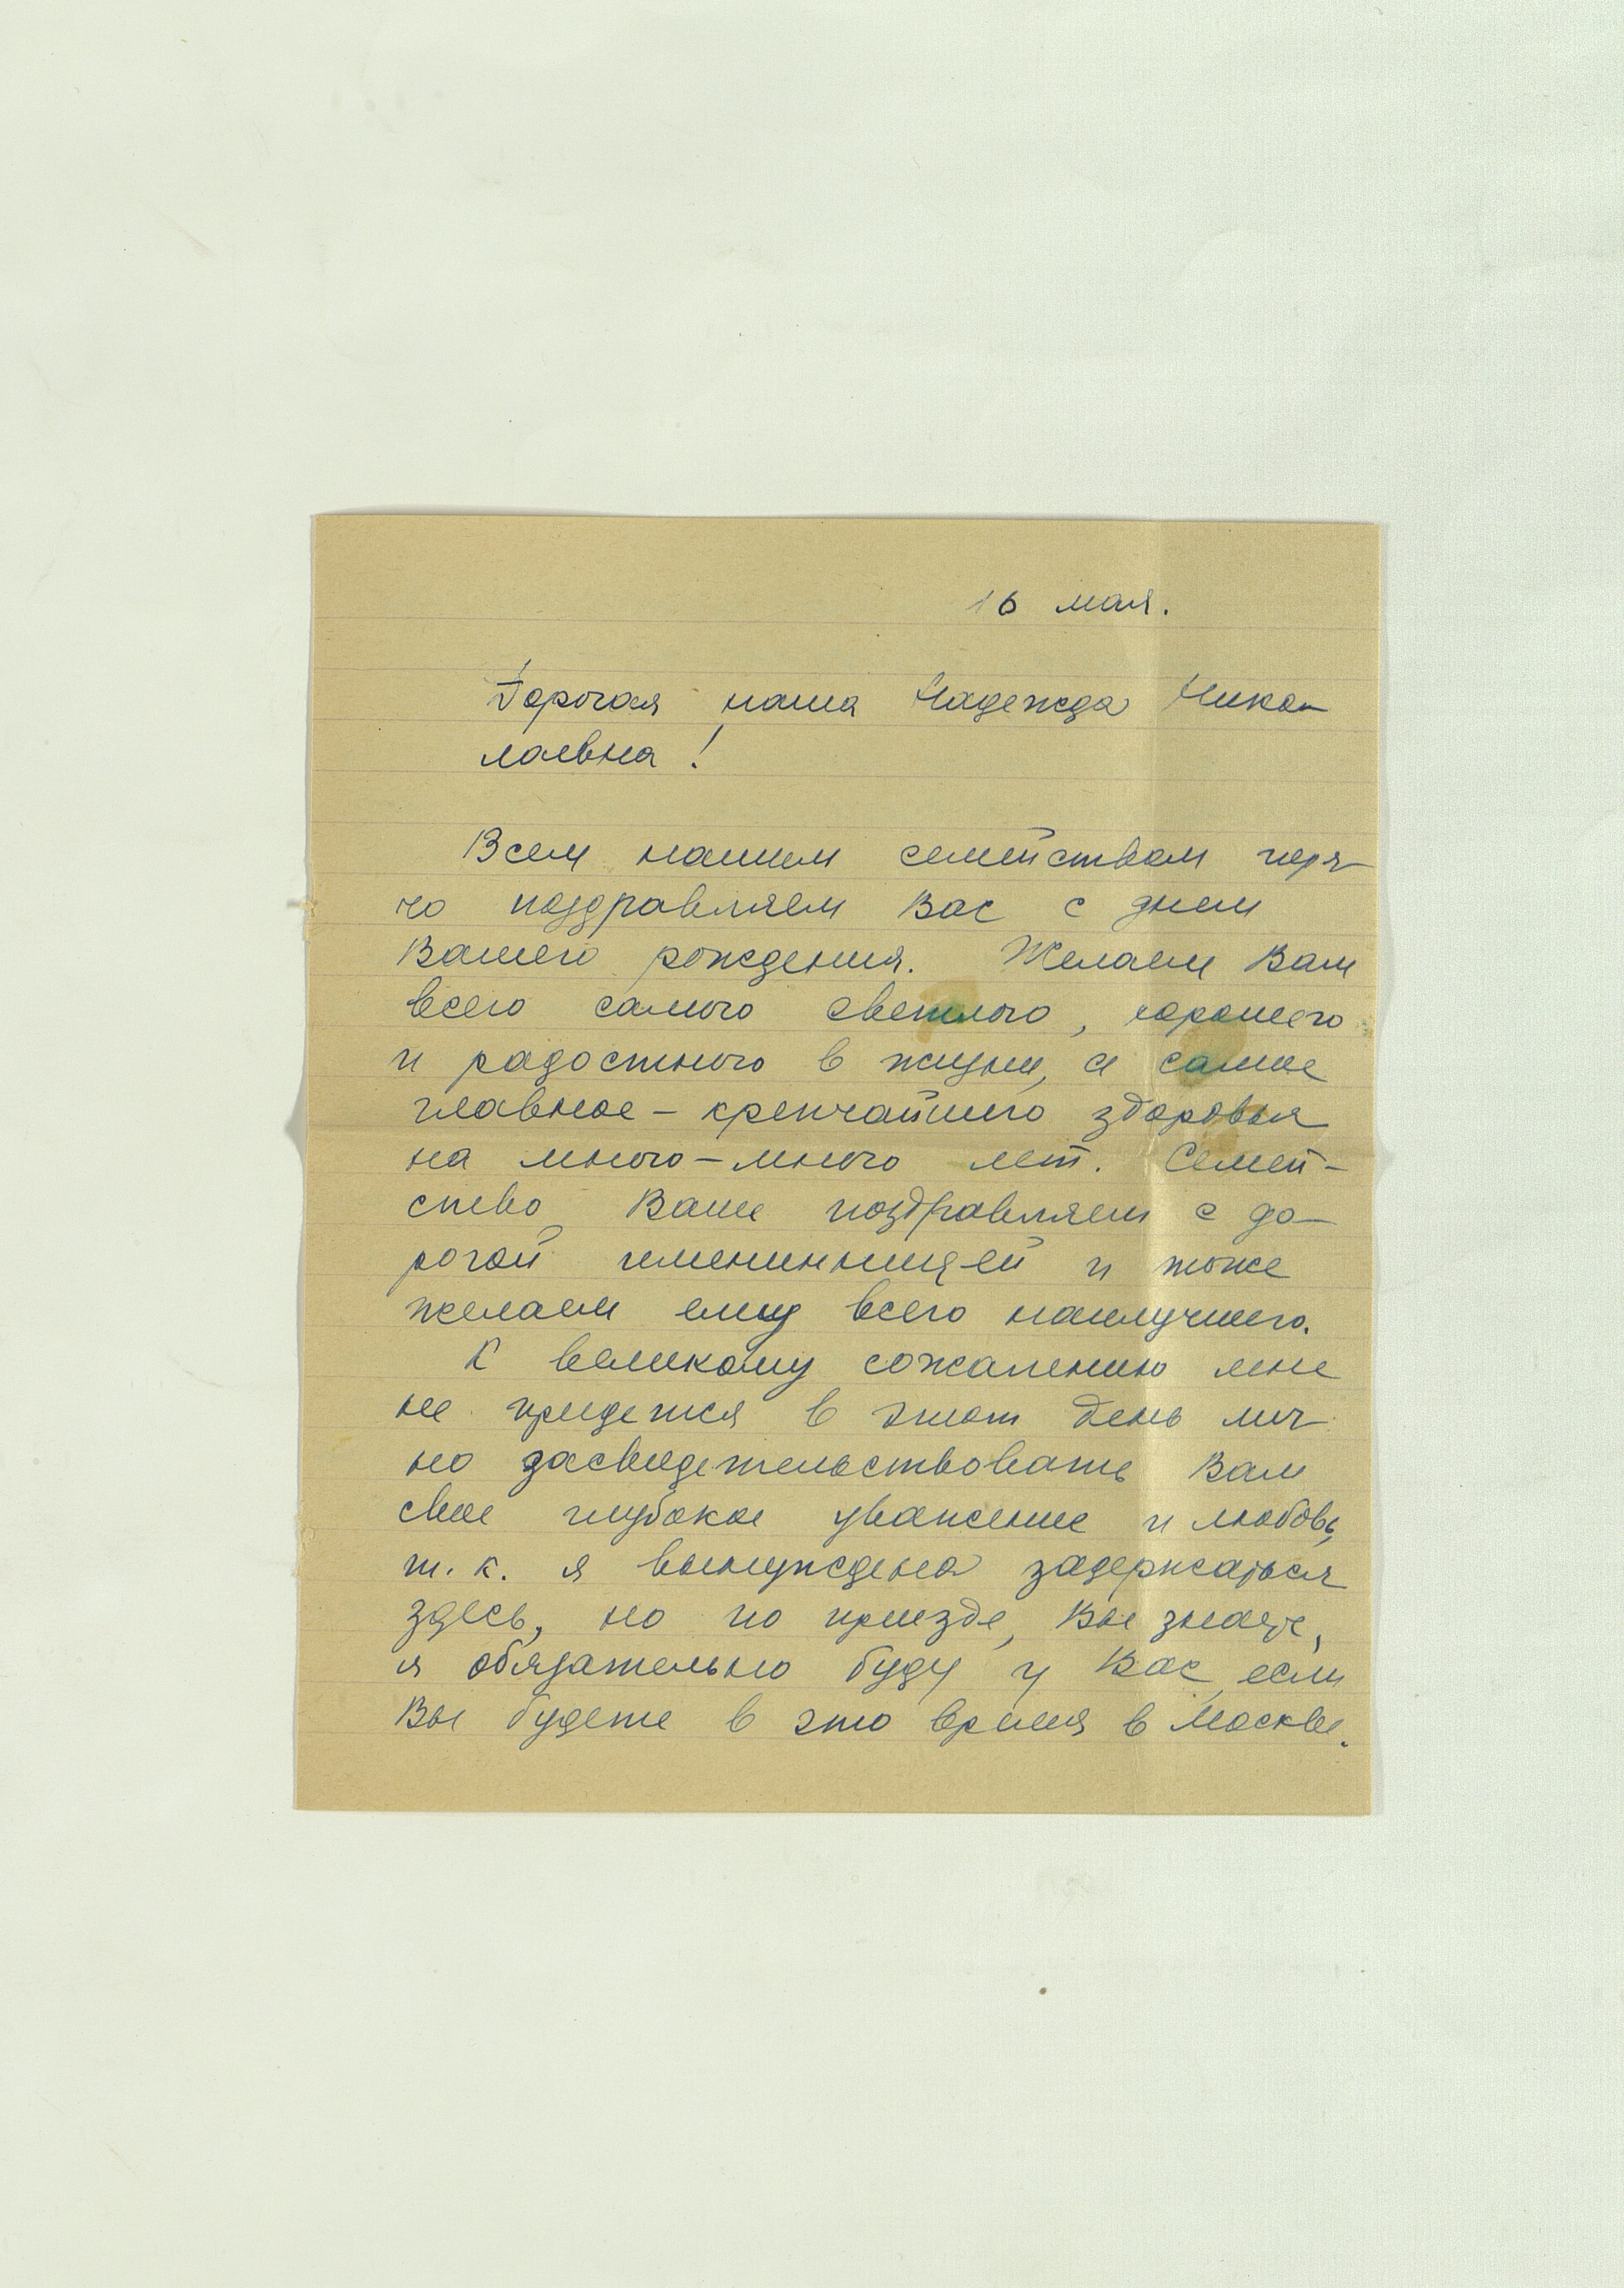 16 мая.
Дорогая наша Надежда Нико-
лаевна!
Всем нашим семейством горя-
чо поздравляем Вас с днем
Вашего рождения. Желаем Вам
всего самого светлого, хорошего
и радостного в жизни, а самое
главное – крепчайшего здоровья
на много – много лет. Семей-
ство Ваше поздравляем с до-
рогой именинницей и тоже
желаем ему всего наилучшего.
К великому сожалению мне
не придется в этот день лич-
но засвидетельствовать Вам
свое глубокое уважение и любовь,
т. к. я вынуждена задержаться
здесь, но по приезде, Вы знаете,
я обязательно буду у Вас, если
Вы будете в это время в Москве.